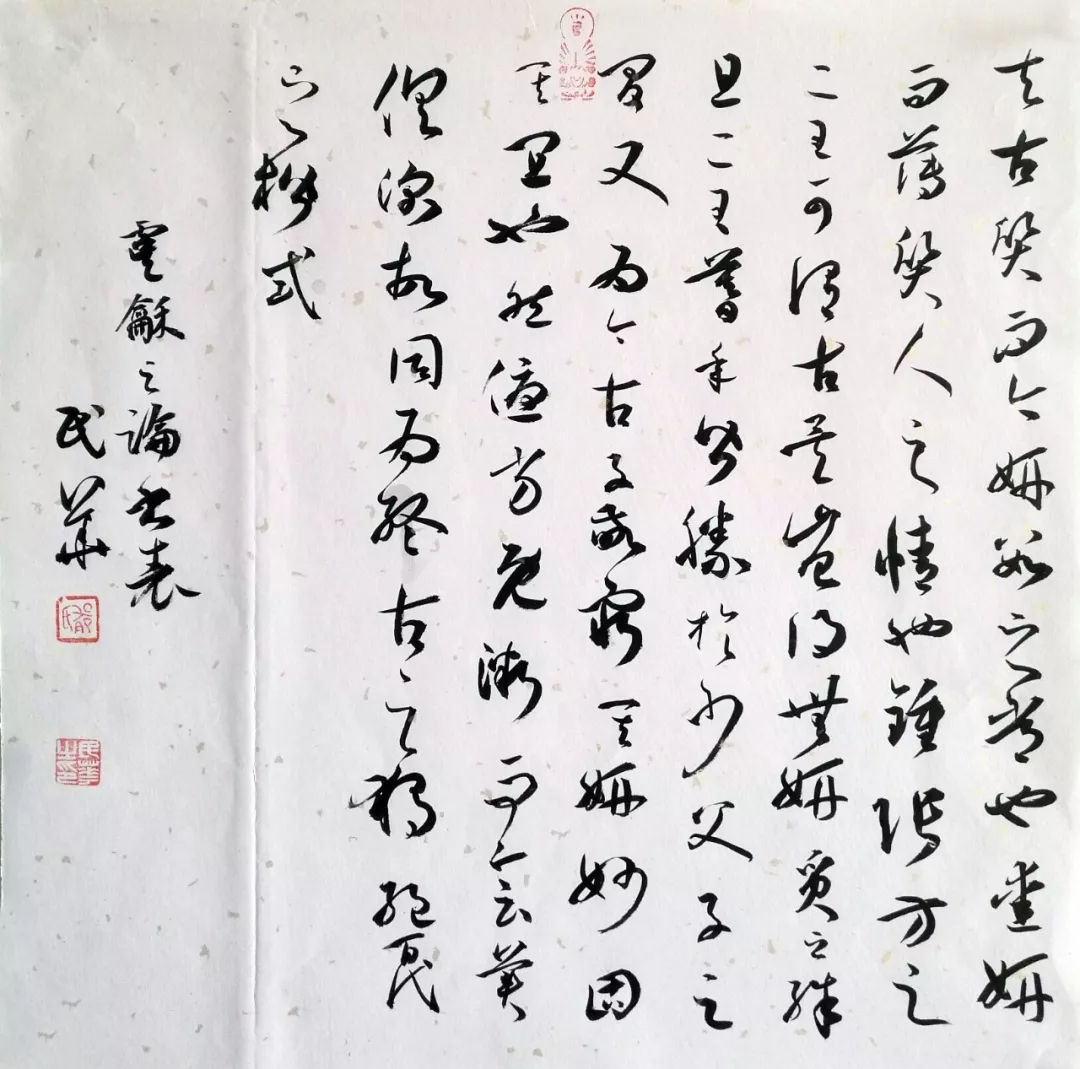 夫古質而今妍數之常也愛妍
而薄質人之情也鍾張方之
二王可謂古矣豈得無妍質之殊
且二王暮年皆勝於少父子之
間又為今古子敬窮其妍妙固
其宜也然優劣既微而會美
俱深故同為終古之獨絕百代
之楷式
虞龢之論書表
民華
民華之印